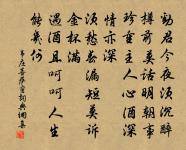 勸君今夜須沉醉
樽前莫話明朝事
珍重主人心酒深
情亦深
須愁春漏短莫訴
金杯滿
遇酒且呵呵人生
能幾何
韋莊菩薩蠻詞典網